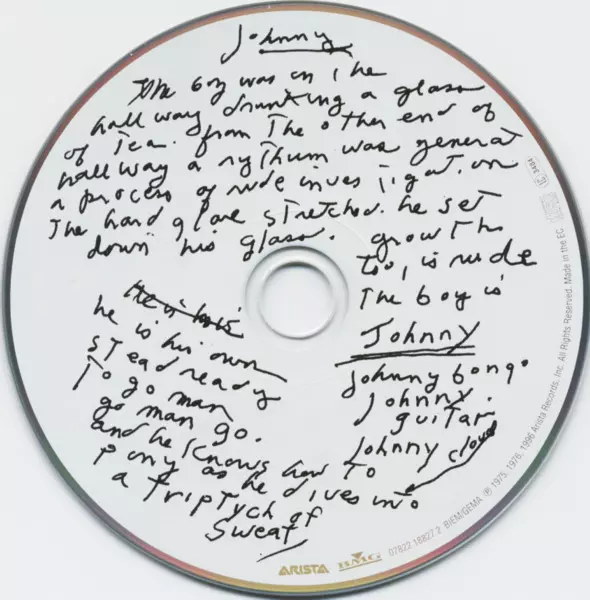 Johnny
The boy was in The
hallway drinking a glass
of Tea. from The other end of
hallway a rythum was generat
a process of rude investigation
The hard glare stretched. he set
down his glass. growth
Too, is rude
The boy is
Johnny
Johnny bongo
Johnny.
guitar
Johnny cloud
He is his
he is his own
stead ready
To go man
go man go.
and he knows how To
pony as he dives into
a Triptych of
Sweat
LC 3484
07822 18827 2 BIEM/GEMA ℗ 1975, 1976, 1996 Arista Records, Inc. All Rights Reserved. Made in the EC
ARISTA BMG